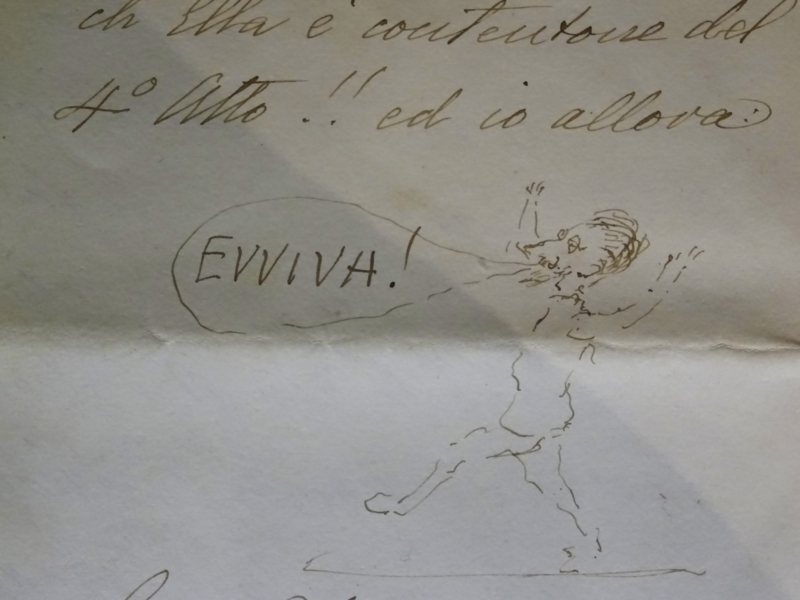 ch Ella è contentone del
4º Atto !! ed io allora:
EVVIVA!